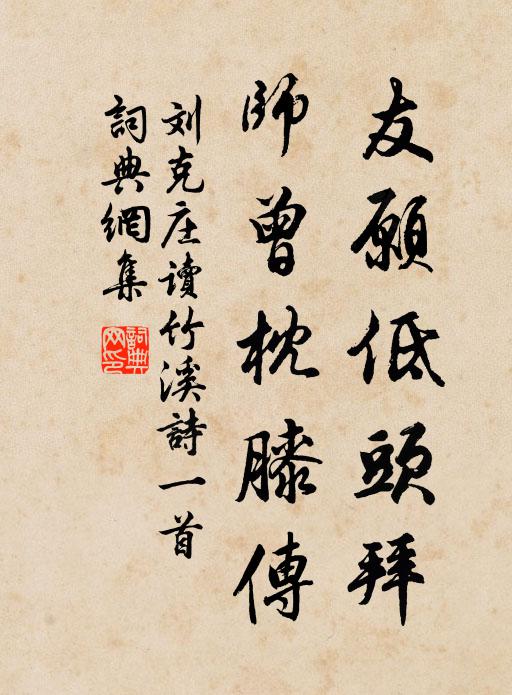 友願低頭拜
師曾枕膝傳
刘克庄讀竹溪詩一首
詞典網集
詞典網印